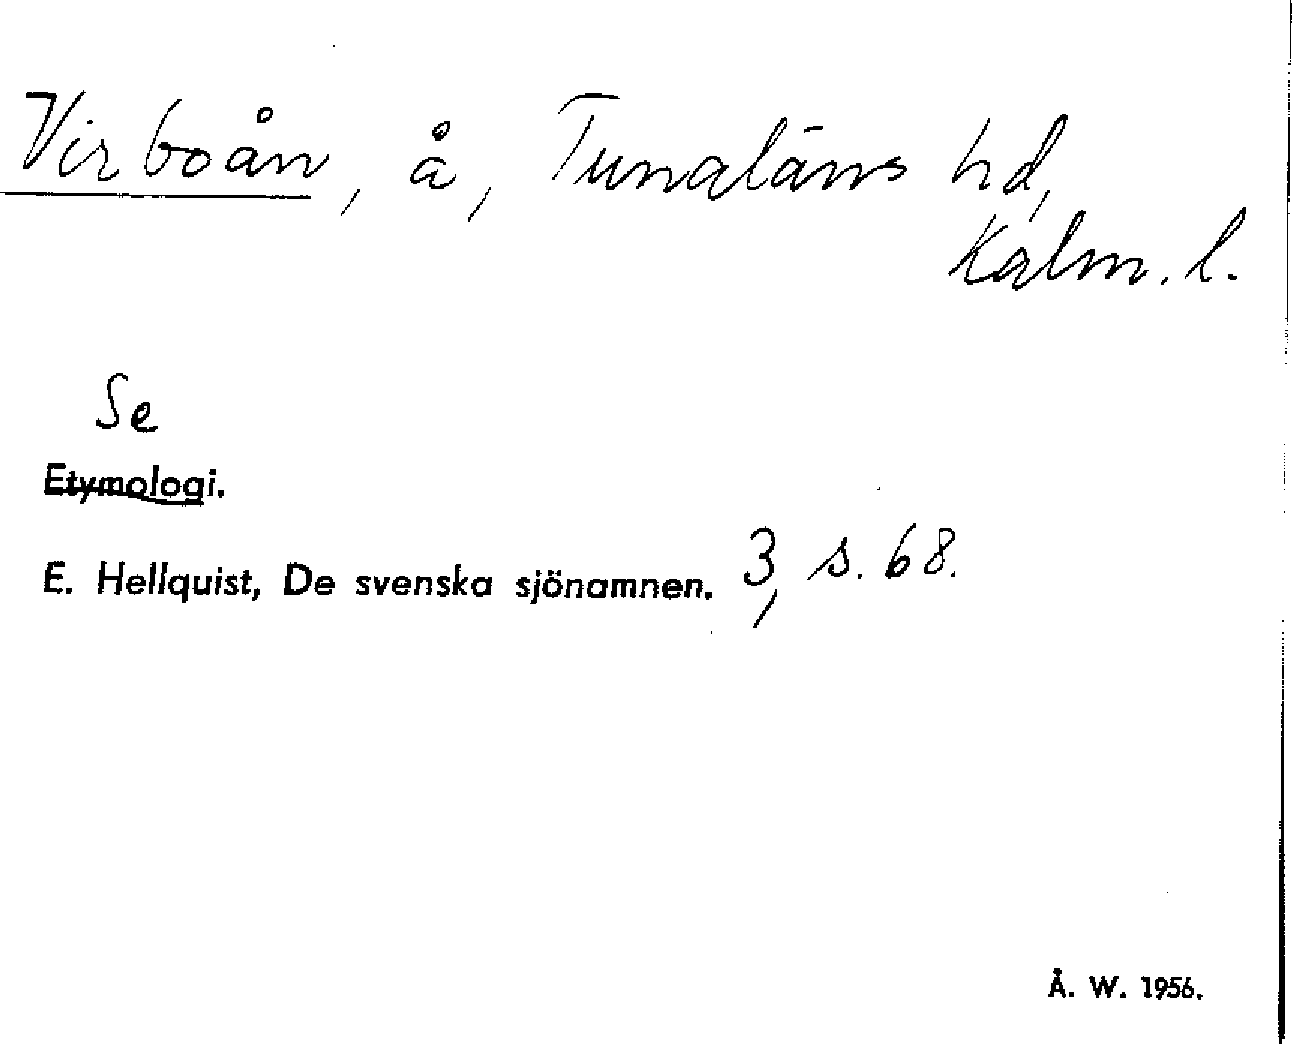 Virboån, å, Tunaläns hd,
Kalm. l.
Se
Etymologi.
E. Hellquist, De svenska sjönamnen. 3, s. 68.
Å. W. 1956.